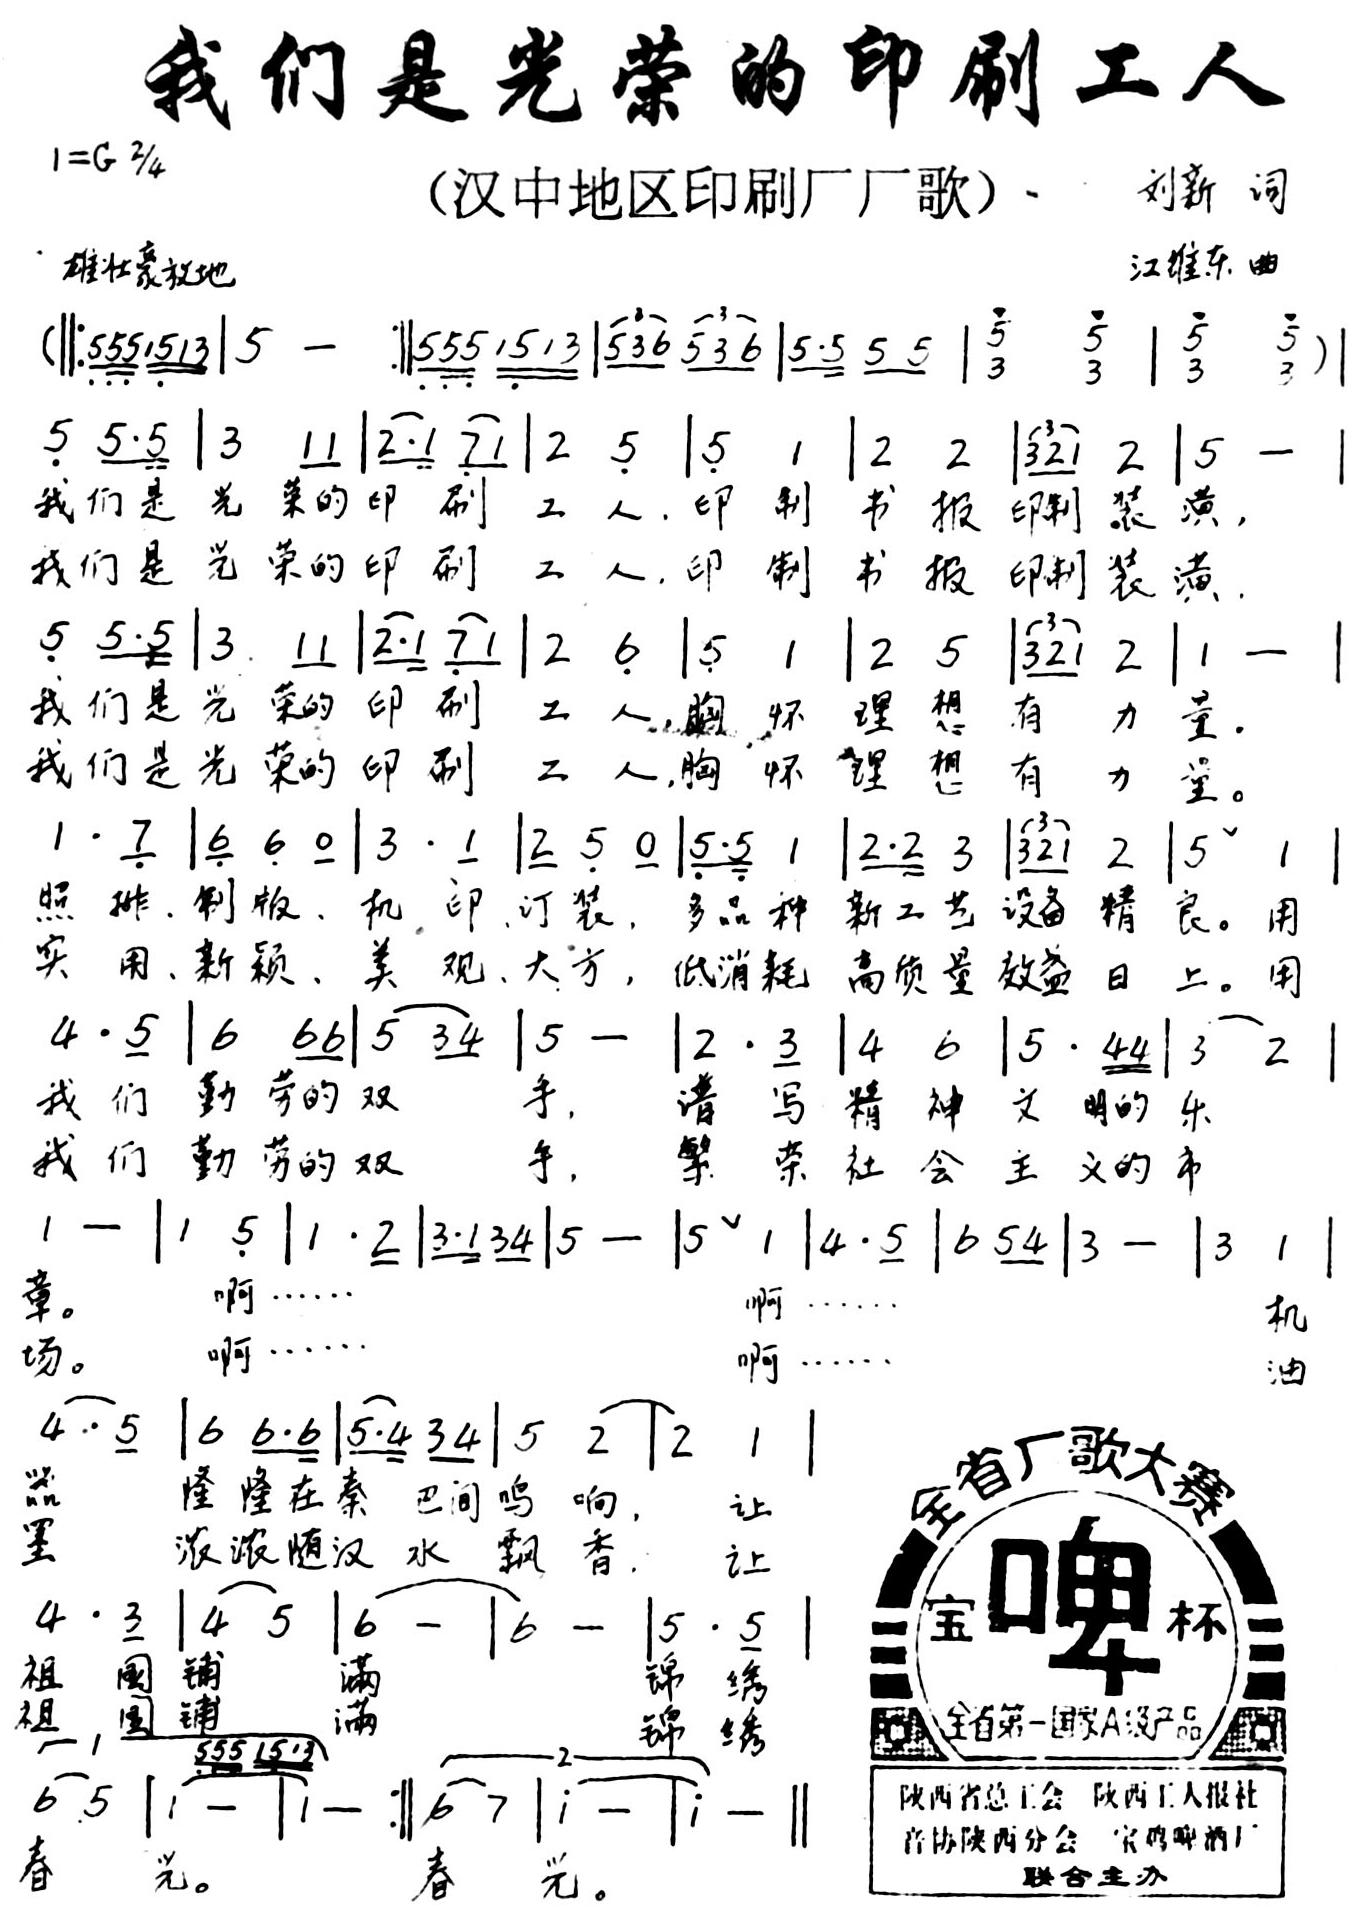 我们是光荣的印刷工人
1=G 2/4
(汉中地区印刷厂厂歌)
刘新 词
雄壮豪放地
江维东 曲
(‖:5551513|5 — :‖5551513|536 536|5·5 5 5|5 5|5 5)|
3 3 3 3
5 5·5|3 11|2·1 71|2 5|5 1|2 2|321 2|5 —|
我们是光荣的印刷工人,印制书报印制装潢,
我们是光荣的印刷工人,印制书报印制装潢,
5 5·5|3 11|2·1 71|2 6|5 1|2 5|321 2|1 —|
我们是光荣的印刷工人,胸怀理想有力量.
我们是光荣的印刷工人,胸怀理想有力量。
1·7|6 6 0|3·1|2 5 0|5·5 1|2·2 3|321 2|5ˇ 1|
照排、制版、机印、订装,多品种新工艺设备精良。用
实用、新颖、美观、大方,低消耗高质量效益日上。用
4·5|6 66|5 34|5 —|2·3|4 6|5·44|3 2|
我们勤劳的双手,谱写精神文明的乐
我们勤劳的双手,繁荣社会主义的市
1 —|1 5|1·2|3·1 34|5 —|5ˇ 1|4·5|6 54|3 —|3 1|
章。啊…… 啊…… 机
场。啊…… 啊…… 油
4·5|6 6·6|5·4 34|5 2|2 1|
器隆隆在秦巴间鸣响,让
墨浓浓随汉水飘香,让
4·3|4 5|6 —|6 —|5·5|
祖國铺满锦绣
祖国铺满锦绣
1 5551513 2
6 5|1 —|1 — :‖6 7|i —|i —‖
春光。春光。
全省厂歌大赛
宝啤杯
全省第一国家A级产品
陕西省总工会 陕西工人报社
音协陕西分会 宝鸡啤酒厂
联合主办